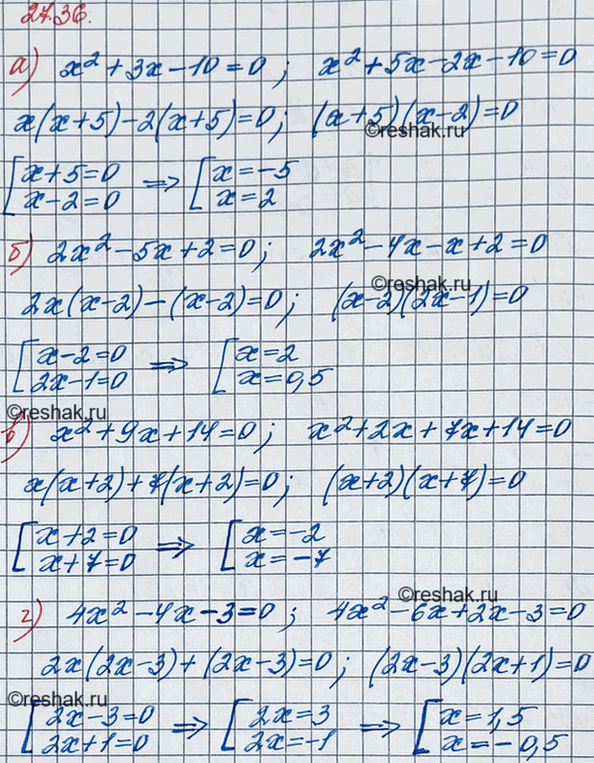 27.36.
а) x² + 3x - 10 = 0; x² + 5x - 2x - 10 = 0
x(x+5) - 2(x+5) = 0; (x+5)(x-2) = 0
©reshak.ru
[x+5=0 ⇒ [x=-5
x-2=0 x=2
б) 2x² - 5x + 2 = 0; 2x² - 4x - x + 2 = 0
©reshak.ru
2x(x-2) - (x-2) = 0; (x-2)(2x-1) = 0
[x-2=0 ⇒ [x=2
2x-1=0 x=0,5
©reshak.ru
в) x² + 9x + 14 = 0; x² + 2x + 7x + 14 = 0
x(x+2) + 7(x+2) = 0; (x+2)(x+7) = 0
[x+2=0 ⇒ [x=-2
x+7=0 x=-7
©reshak.ru
г) 4x² - 4x - 3 = 0; 4x² - 6x + 2x - 3 = 0
2x(2x-3) + (2x-3) = 0; (2x-3)(2x+1) = 0
©reshak.ru
[2x-3=0 ⇒ [2x=3 ⇒ [x=1,5
2x+1=0 2x=-1 x=-0,5